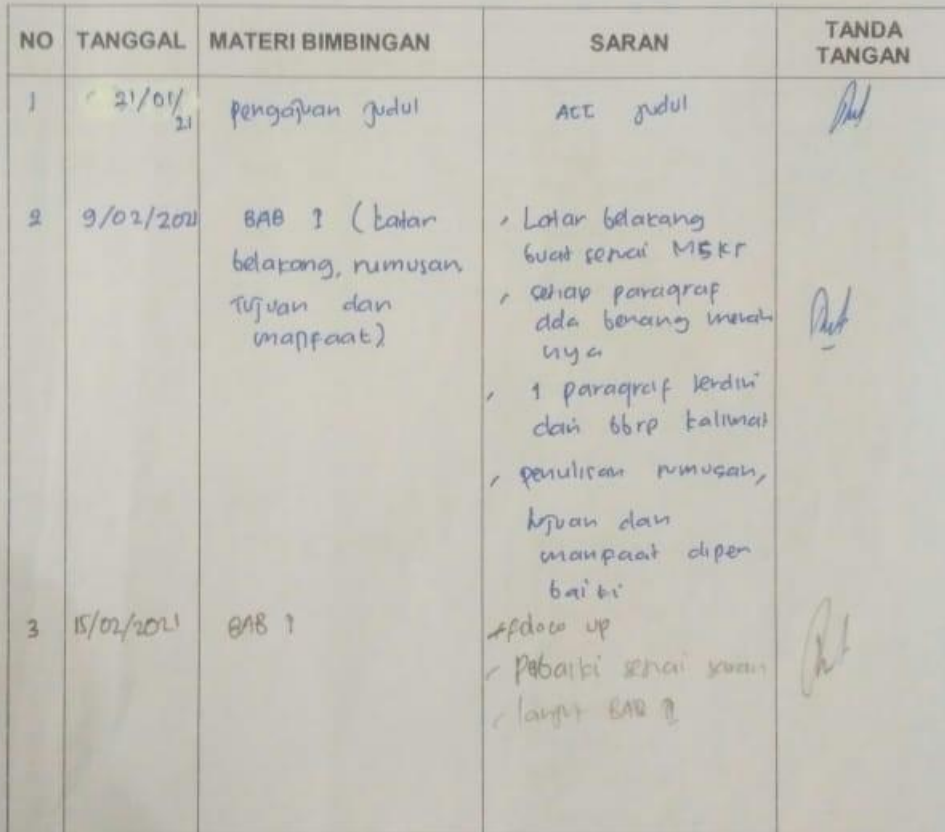 NO TANGGAL MATERI BIMBINGAN SARAN TANDA TANGAN
1 21/01/21 pengajuan judul ACC judul
2 9/02/2021 BAB 1 (Latar
belakang, rumusan
Tujuan dan
manfaat)
, Latar belakang
buat sesuai MSKS
, setiap paragraf
ada benang merah
nya
, 1 paragraf terdiri
dari bbrp kalimat
, penulisan rumusan,
tujuan dan
manfaat diper
baiki
3 15/02/2021 BAB 1
up
sesuai saran
lanjut BAB